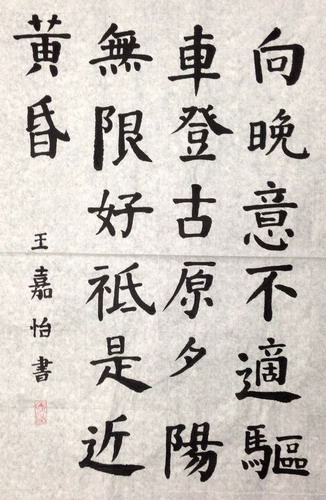 向晚意不適驅
車登古原夕陽
無限好祗是近
黃昏
王嘉怡書